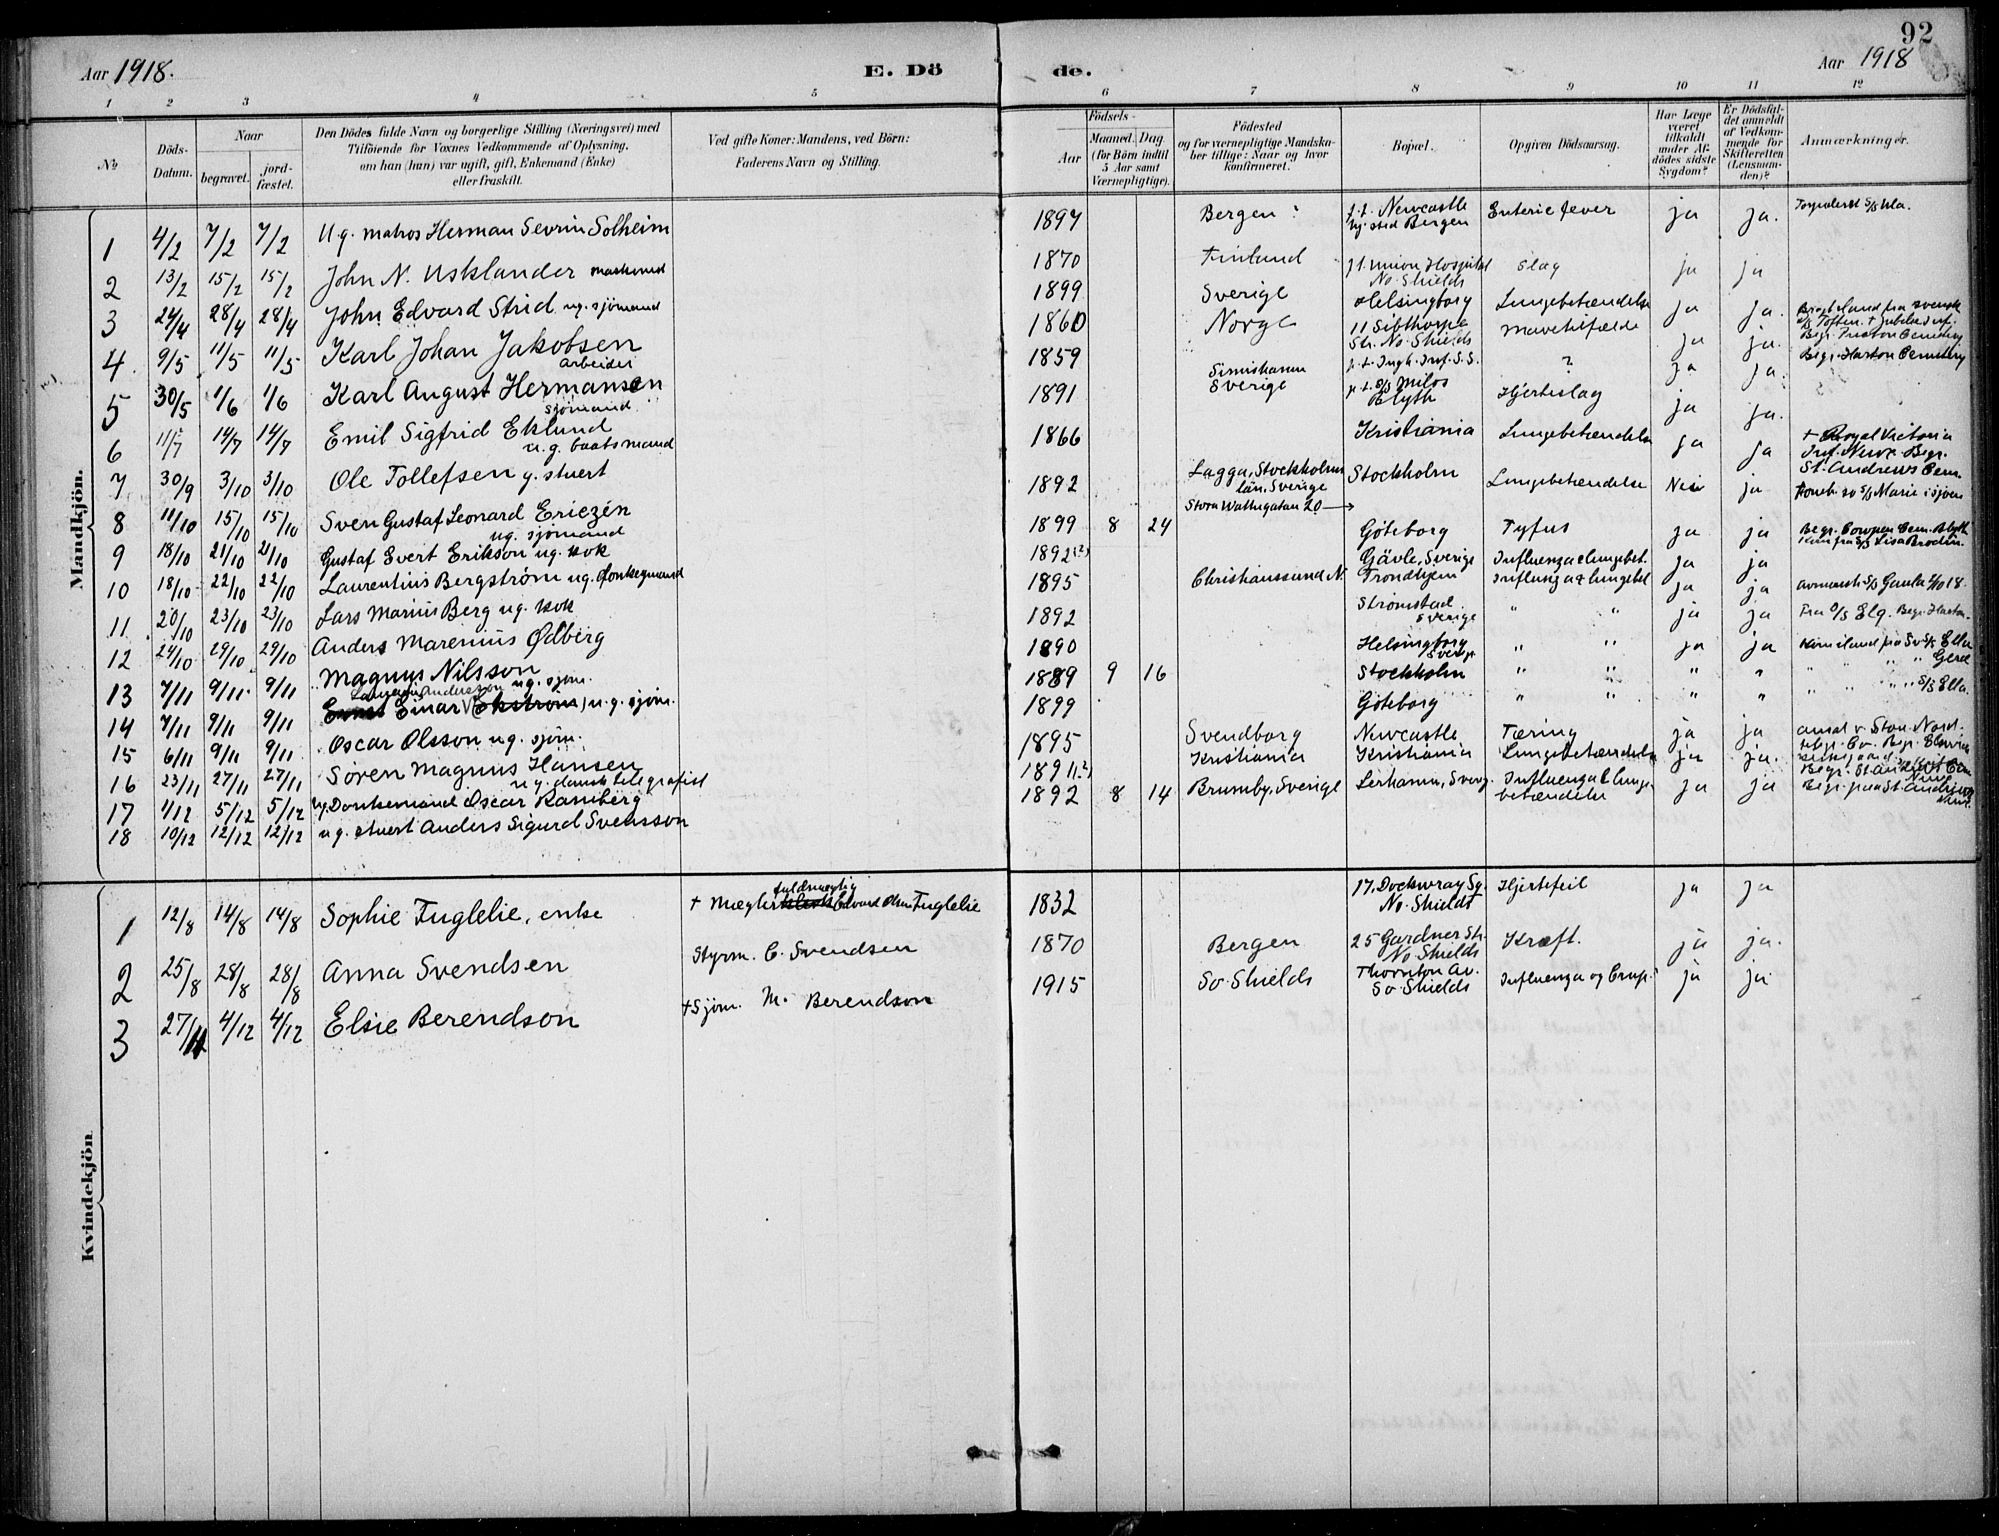 92
Aar 1918.
E. Dö
de.
Aar 1918
1 2 3 4 5 6 7 8 9 10 11 12
№
Döds-Datum.
Naar
begravet.
jord-fæstet.
Den Dödes fulde Navn og borgerlige Stilling (Næringsvei) med
Tilföiende for Voxnes Vedkommende af Oplysning,
om han (hun) var ugift, gift, Enkemand (Enke)
eller fraskilt.
Ved gifte Koner: Mandens, ved Börn:
Faderens Navn og Stilling.
Födsels-
Aar
Maaned. Dag.
(for Börn indtil
5 Aar samt
Værnepligtige).
Födested
og for værnepligtige Mandska-
ber tillige: Naar og hvor
konfirmeret.
Bopæl.
Opgiven Dödsaarsag.
Har Læge
været
tilkaldt
under Af-
dödes sidste
Sygdom?
Er Dödsfal-
det anmeldt
af Vedkom-
mende for
Skifteretten
(Lensman-
den)?
Anmærkninger.
Mandkjön.
1 4/2 7/2 7/2 Ug. matros Herman Sevrin Solheim 1897 Bergen: Newcastle Bergen Enteric fever ja ja.
2 13/2 15/2 15/2 John N. Usklander 1870 Finland Union Hospital No. Shields Slag ja ja
3 24/4 28/4 28/4 John Edvard Strid ug. sjömand 1899 Sverige Helsingborg Lungebetændelse ja ja.
4 9/5 11/5 11/5 Karl Johan Jakobsen arbeider 1860 Norge 11 Sibthorpe Str. No. Shields ja ja. Begr. Preston Cemetery
5 30/5 1/6 1/6 Karl August Hermansen sjömand 1859 Ingh. Inf. S.S. ? ja ja. Begr. Harton Cemetery
6 11/7 14/7 14/7 Emil Sigfrid Eklund u.g. baatsmand 1891 Sverige S/S Milos Blyth Hjerteslag ja ja.
7 30/9 3/10 3/10 Ole Tollefsen g. stuert 1866 Kristiania Lungebetændelse ja ja + Royal Victoria Inf. Newc. Begr. St. Andrews Cem.
8 11/10 15/10 15/10 Sven Gustaf Leonard Ericzén ug. sjömand 1892 Lagga, Stockholms län, Sverige Stockholm Lungebetændelse Nei ja
Stora Wattugatan 20 →
9 18/10 21/10 21/10 Gustaf Evert Erikson ug. kok 1899 8 24 Göteborg Tyfus ja ja Begr. Cowpen Cem. Blyth Kom fra S/S Lisa Brodin.
10 18/10 22/10 22/10 Laurentius Bergström ug. Donkeymand 1892(?) Gävle, Sverige Influenza & lungebet. ja ja
11 20/10 23/10 23/10 Lars Marius Berg ug. kok 1895 Christianssund N. Trondhjem Influenza & lungebet ja ja avmønst. S/S Gaula
12 24/10 29/10 29/10 Anders Marenius Ödberg 1892 Strömstad Sverige " " ja ja Fra S/S Elg. Begr. Harton
13 7/11 9/11 9/11 Magnus Nilsson ug. sjöm. 1890 Helsingborg Sverige " " ja ja
14 7/11 9/11 9/11 Einar (Ekström) Andersson u.g. sjöm. 1889 9 16 Stockholm " " " "
15 6/11 9/11 9/11 Oscar Olsson ug. sjöm. 1899 Göteborg " " " " S/S Ella.
16 23/11 27/11 27/11 Sören Magnus Hansen u.g. dansk telegrafist 1895 Svendborg Newcastle Tæring ja ja
17 1/12 5/12 5/12 ug. Donkemand Oscar Ramberg 1891(?) Kristiania Kristiania Lungebetændelse ja ja.
18 10/12 12/12 12/12 ug. stuert Anders Sigurd Svensson 1892 8 14 Brumby, Sverige Influenza & lungebetændelse ja ja Begr. paa St. Andrews
Kvindekjön
1 12/8 14/8 14/8 Sophie Fuglelie, enke + Mægler fuldmægtig Edvard Olsen Fuglelie 1832 17, Dockwray Sq. No. Shields Hjertefeil ja ja
2 25/8 28/8 28/8 Anna Svendsen Styrm. C. Svendsen 1870 Bergen 25 Gardner Str. No Shields Kræft. ja ja.
3 27/11 4/12 4/12 Elsie Berendson + Sjöm. M. Berendson 1915 So. Shields Thornton Av. So Shields Influenza og Crup. ja ja